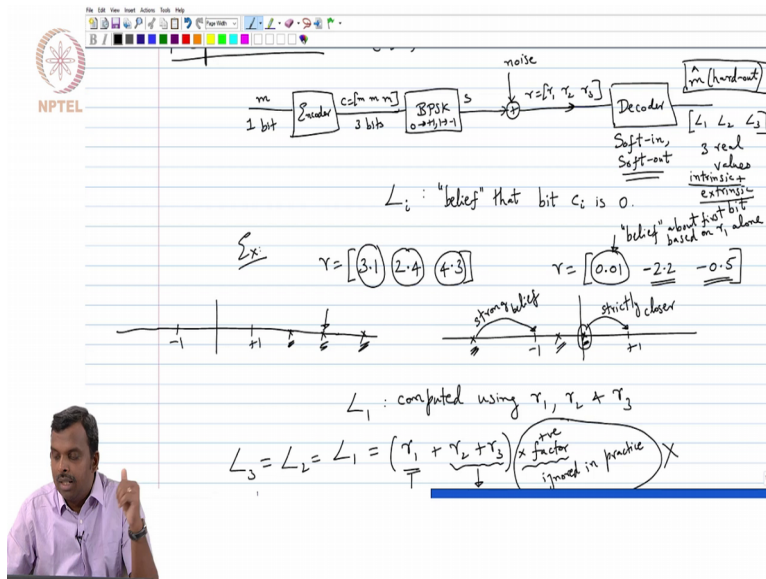 File Edit View Insert Actions Tools Help
Page Width
B I
NPTEL
noise
m
1 bit
Encoder
c=[m m m]
3 bits
BPSK
0→+1, 1→-1
s
r=[r₁ r₂ r₃]
Decoder
m̂ (hard-out)
Soft-in,
Soft-out
[L₁ L₂ L₃]
3 real
values
intrinsic +
extrinsic
Lᵢ : "belief" that bit cᵢ is 0.
"belief" about first bit
based on r₁ alone
Ex:
r = [3.1 2.4 4.3]
r = [0.01 -2.2 -0.5]
strong belief
strictly closer
-1 +1
-1 +1
L₁ : computed using r₁, r₂ & r₃
L₃ = L₂ = L₁ = (r₁ + r₂ + r₃) (× +ve factor ignored in practice) ×